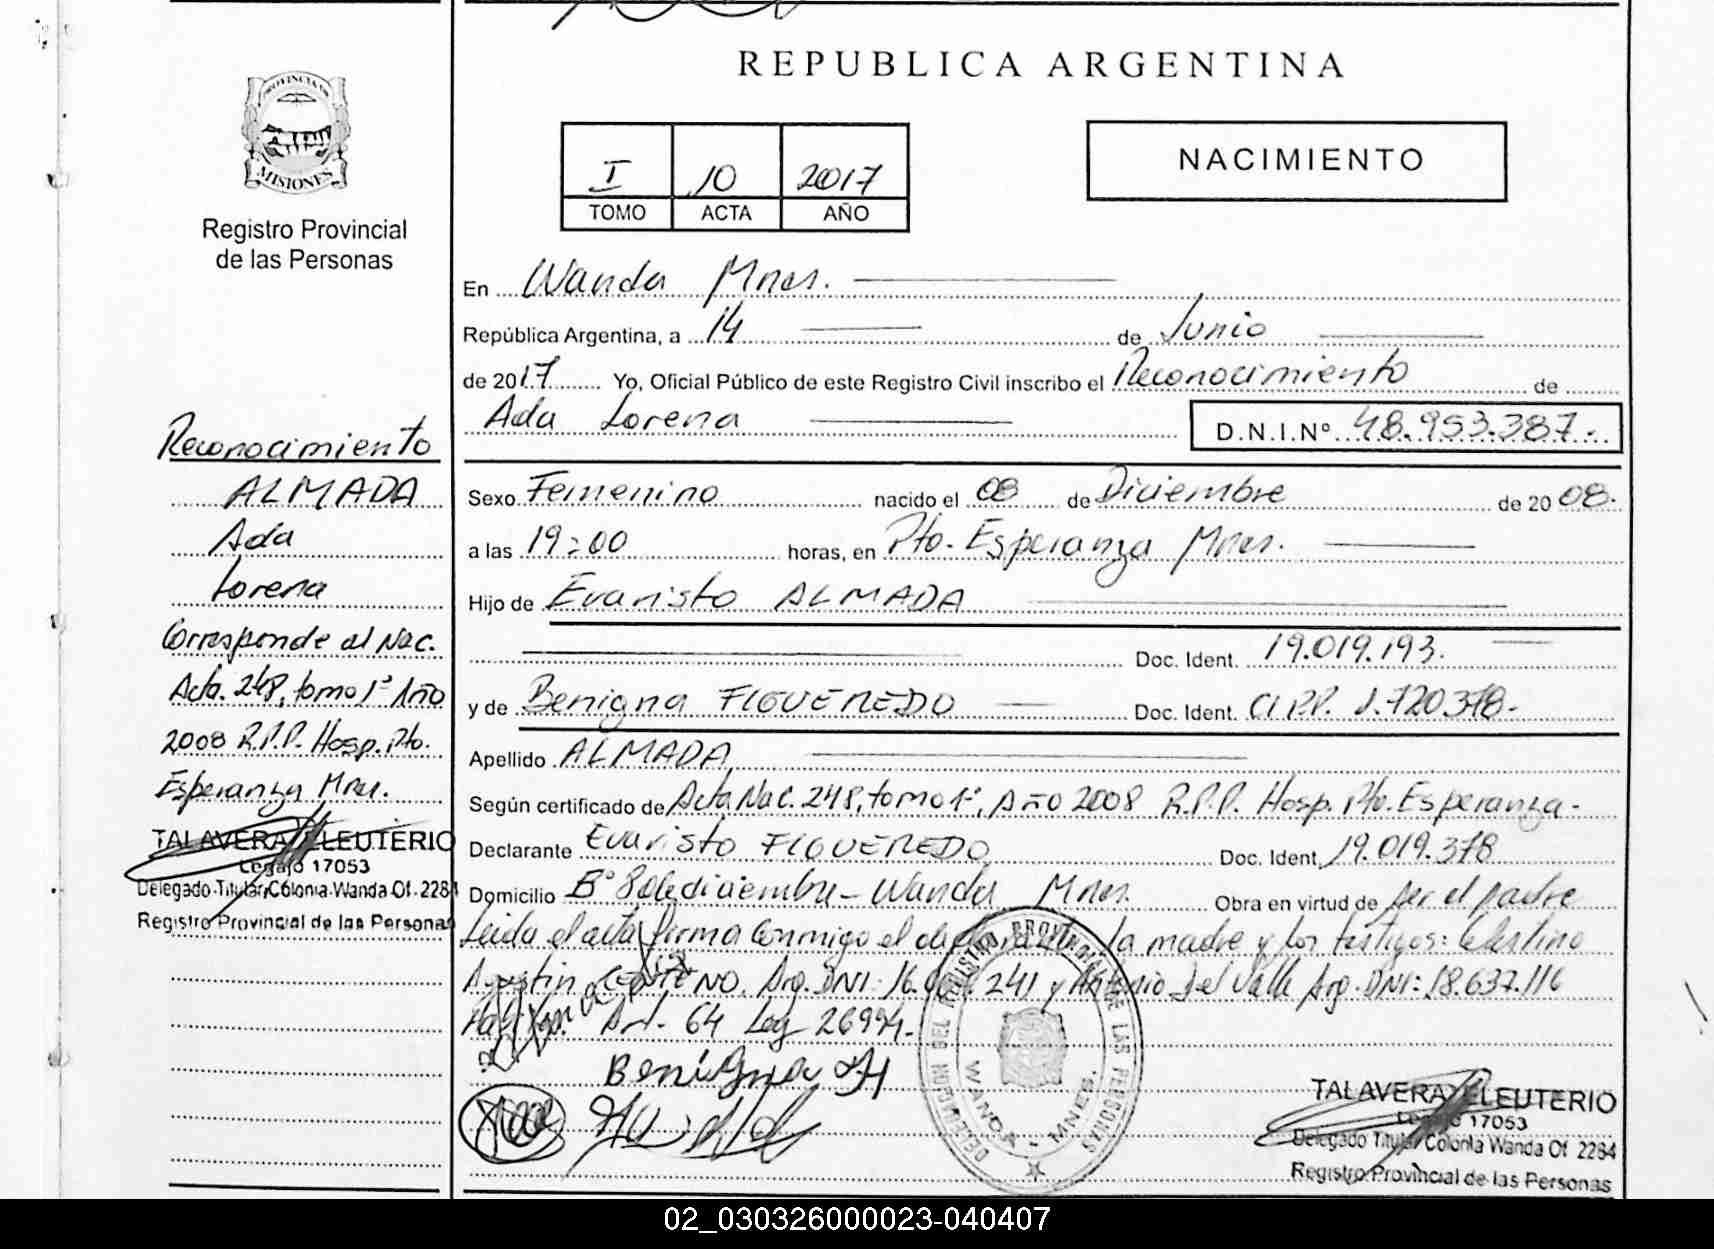 REPUBLICA ARGENTINA
PROVINCIA DE
MISIONES
Registro Provincial
de las Personas
I 10 2017
TOMO ACTA AÑO
NACIMIENTO
En Wanda Mnes.
República Argentina, a 14 de Junio
de 2017 Yo, Oficial Público de este Registro Civil inscribo el Reconocimiento de
Ada Lorena D.N.I.Nº 48.953.387-
Sexo Femenino nacido el 08 de Diciembre de 2008.
a las 19:00 horas, en Pto. Esperanza Mnes.
Hijo de Evaristo ALMADA
Doc. Ident. 19.019.193.
y de Benigna FIGUEREDO Doc. Ident. CI P.P. 1.720.378-
Apellido ALMADA
Según certificado de Acta Nac. 248, tomo 1º, Año 2008 R.P.P. Hosp. Pto. Esperanza-
Declarante Evaristo FIGUEREDO Doc. Ident. 19.019.378
Domicilio Bº 8 de diciembre - Wanda Mnes. Obra en virtud de ser el padre
Leida el acta firma conmigo el la madre y los testigos: Celestino
Agustin CENTENO, Arg. DNI: 16. 241 y Antonio Del Valle Arg. DNI: 18.637.116
Art. 64 Ley 26994-
Benigna
Reconocimiento
ALMADA
Ada
Lorena
Corresponde al Nac.
Acta. 248, tomo 1º Año
2008 R.P.P. Hosp. Pto.
Esperanza Mnes.
TALAVERA ELEUTERIO
Legajo 17053
Delegado Titular Colonia Wanda Of. 2284
Registro Provincial de las Personas
DELEGACION DEL REGISTRO PROVINCIAL DE LAS PERSONAS
WANDA - MNES.
TALAVERA ELEUTERIO
Legajo 17053
Delegado Titular Colonia Wanda Of. 2284
Registro Provincial de las Personas
02_030326000023-040407